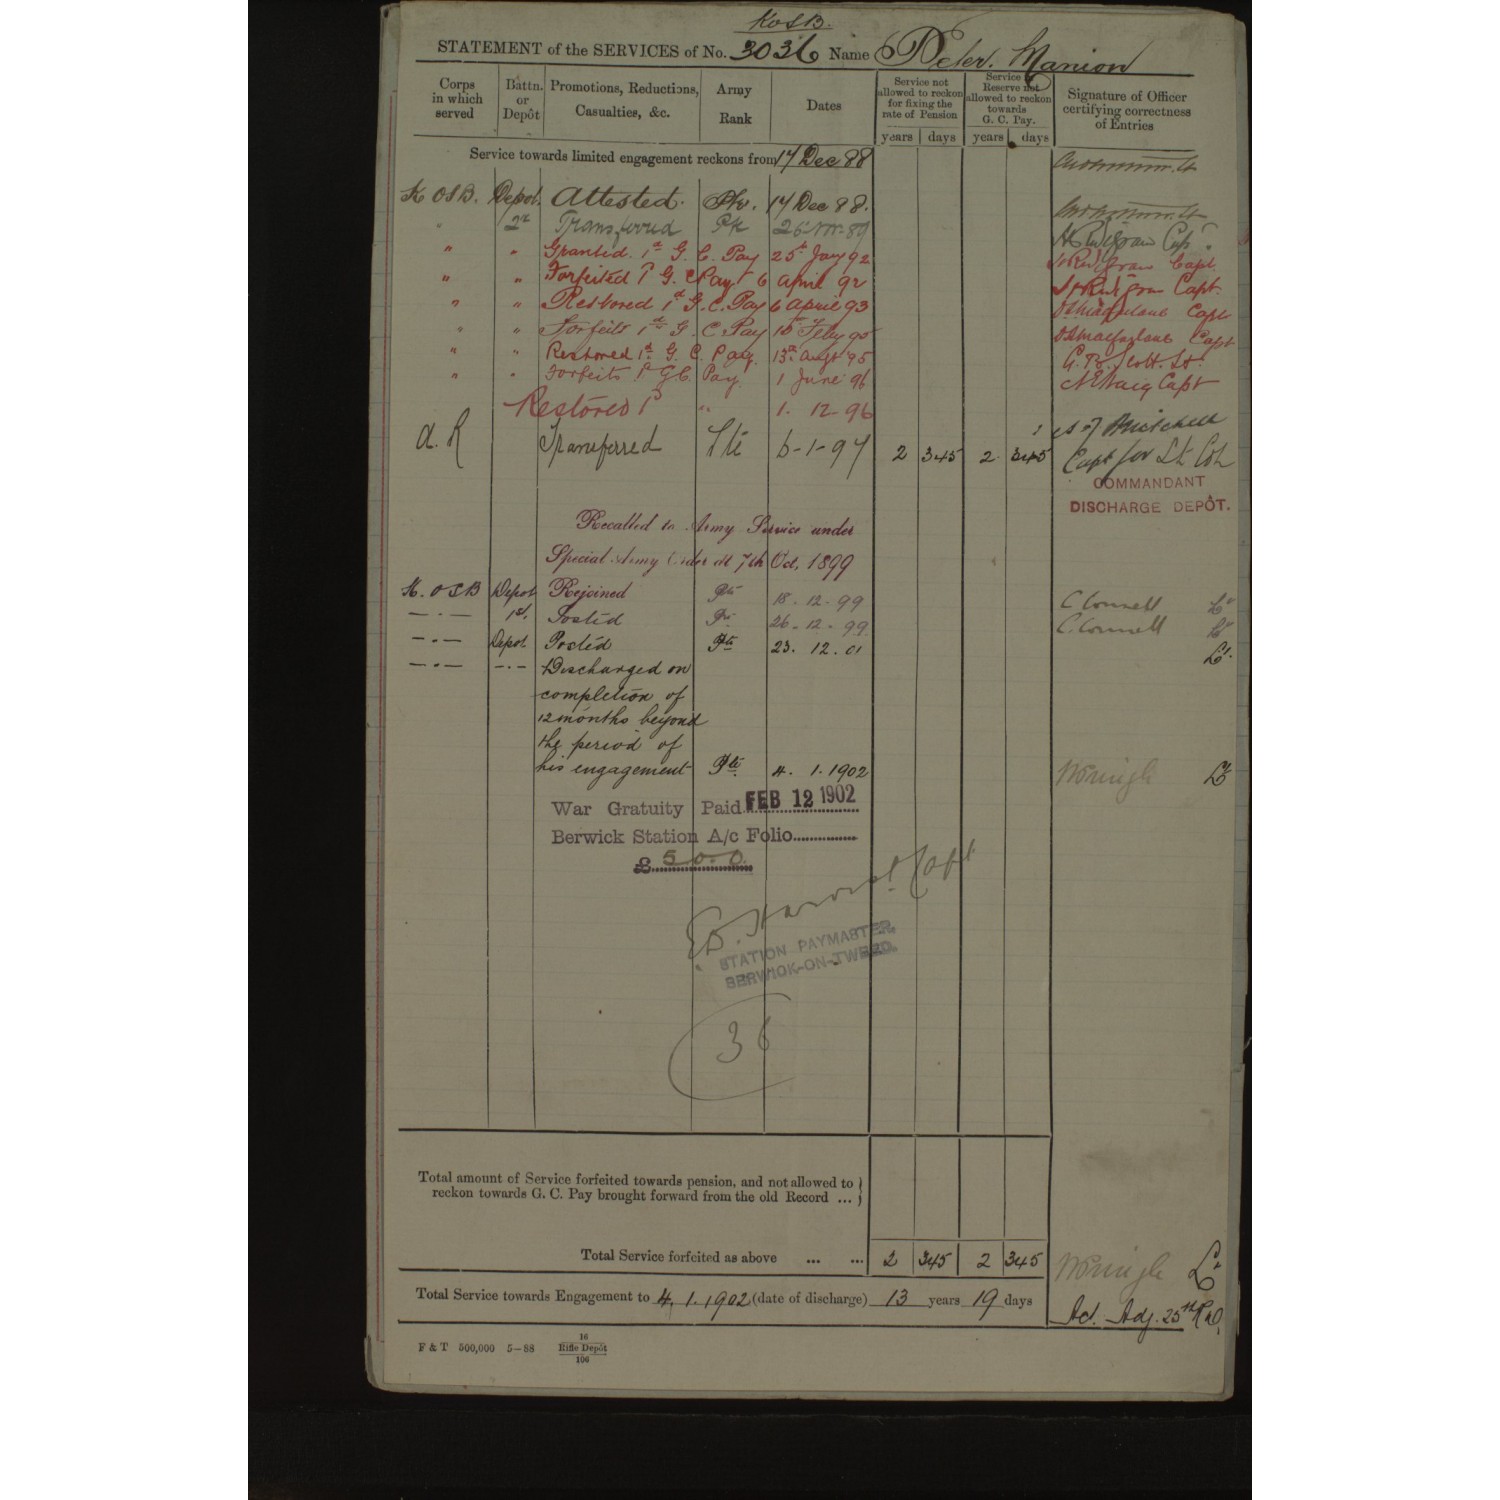 KOSB.
STATEMENT of the SERVICES of No. 3036 Name Peter Manion
Corps in which served
Battn. or Depôt
Promotions, Reductions, Casualties, &c.
Army Rank
Dates
Service not allowed to reckon for fixing the rate of Pension
years days
Service in Reserve not allowed to reckon towards G. C. Pay.
years days
Signature of Officer certifying correctness of Entries
Service towards limited engagement reckons from 17 Dec 88
K OSB. Depot. Attested. Pte. 17 Dec 88.
" 2nd Transferred 26 Nov. 89
" " Granted 1st G. C. Pay 25th Jany 92
" " Forfeited 1st G. C Pay 6 April 92
" " Restored 1st G. C. Pay 6 April 93 Capt
" " Forfeits 1st G. C. Pay Feby 95 D Macfarlane Capt
" " Restored 1st G. C. Pay. 13th Augt 95 G. B. Scott. Lt.
" " Forfeits 1st G.C. Pay 1 June 96 Capt
Restored 1st " 1. 12-96
A. R Transferred Pte 6-1-97 2 345 2 345 Mitchell
Capt for Lt Col
COMMANDANT
DISCHARGE DEPÔT.
Recalled to Army Service under
Special Army Order dt 7th Oct, 1899
K. OSB Depot Rejoined Pte 18. 12. 99 C Connell Lt
— . — 1st. Posted Pte 26. 12. 99. C. Connell Lt
— . — Depot Posted Pte 23. 12. 01 Lt.
— . — — . — Discharged on
completion of
12 months beyond
the period of
his engagement Pte. 4. 1. 1902 Lt
War Gratuity Paid FEB 12 1902
Berwick Station A/c Folio
£ 5 0. 0.
Capt
STATION PAYMASTER,
BERWICK-ON-TWEED.
36
Total amount of Service forfeited towards pension, and not allowed to
reckon towards G. C. Pay brought forward from the old Record ...
Total Service forfeited as above ... ... 2 345 2 345 Lt
Total Service towards Engagement to 4. 1. 1902 (date of discharge) 13 years 19 days
Ad. Adj. 25th R.D.
F & T 500,000 5—88
16
Rifle Depôt
106